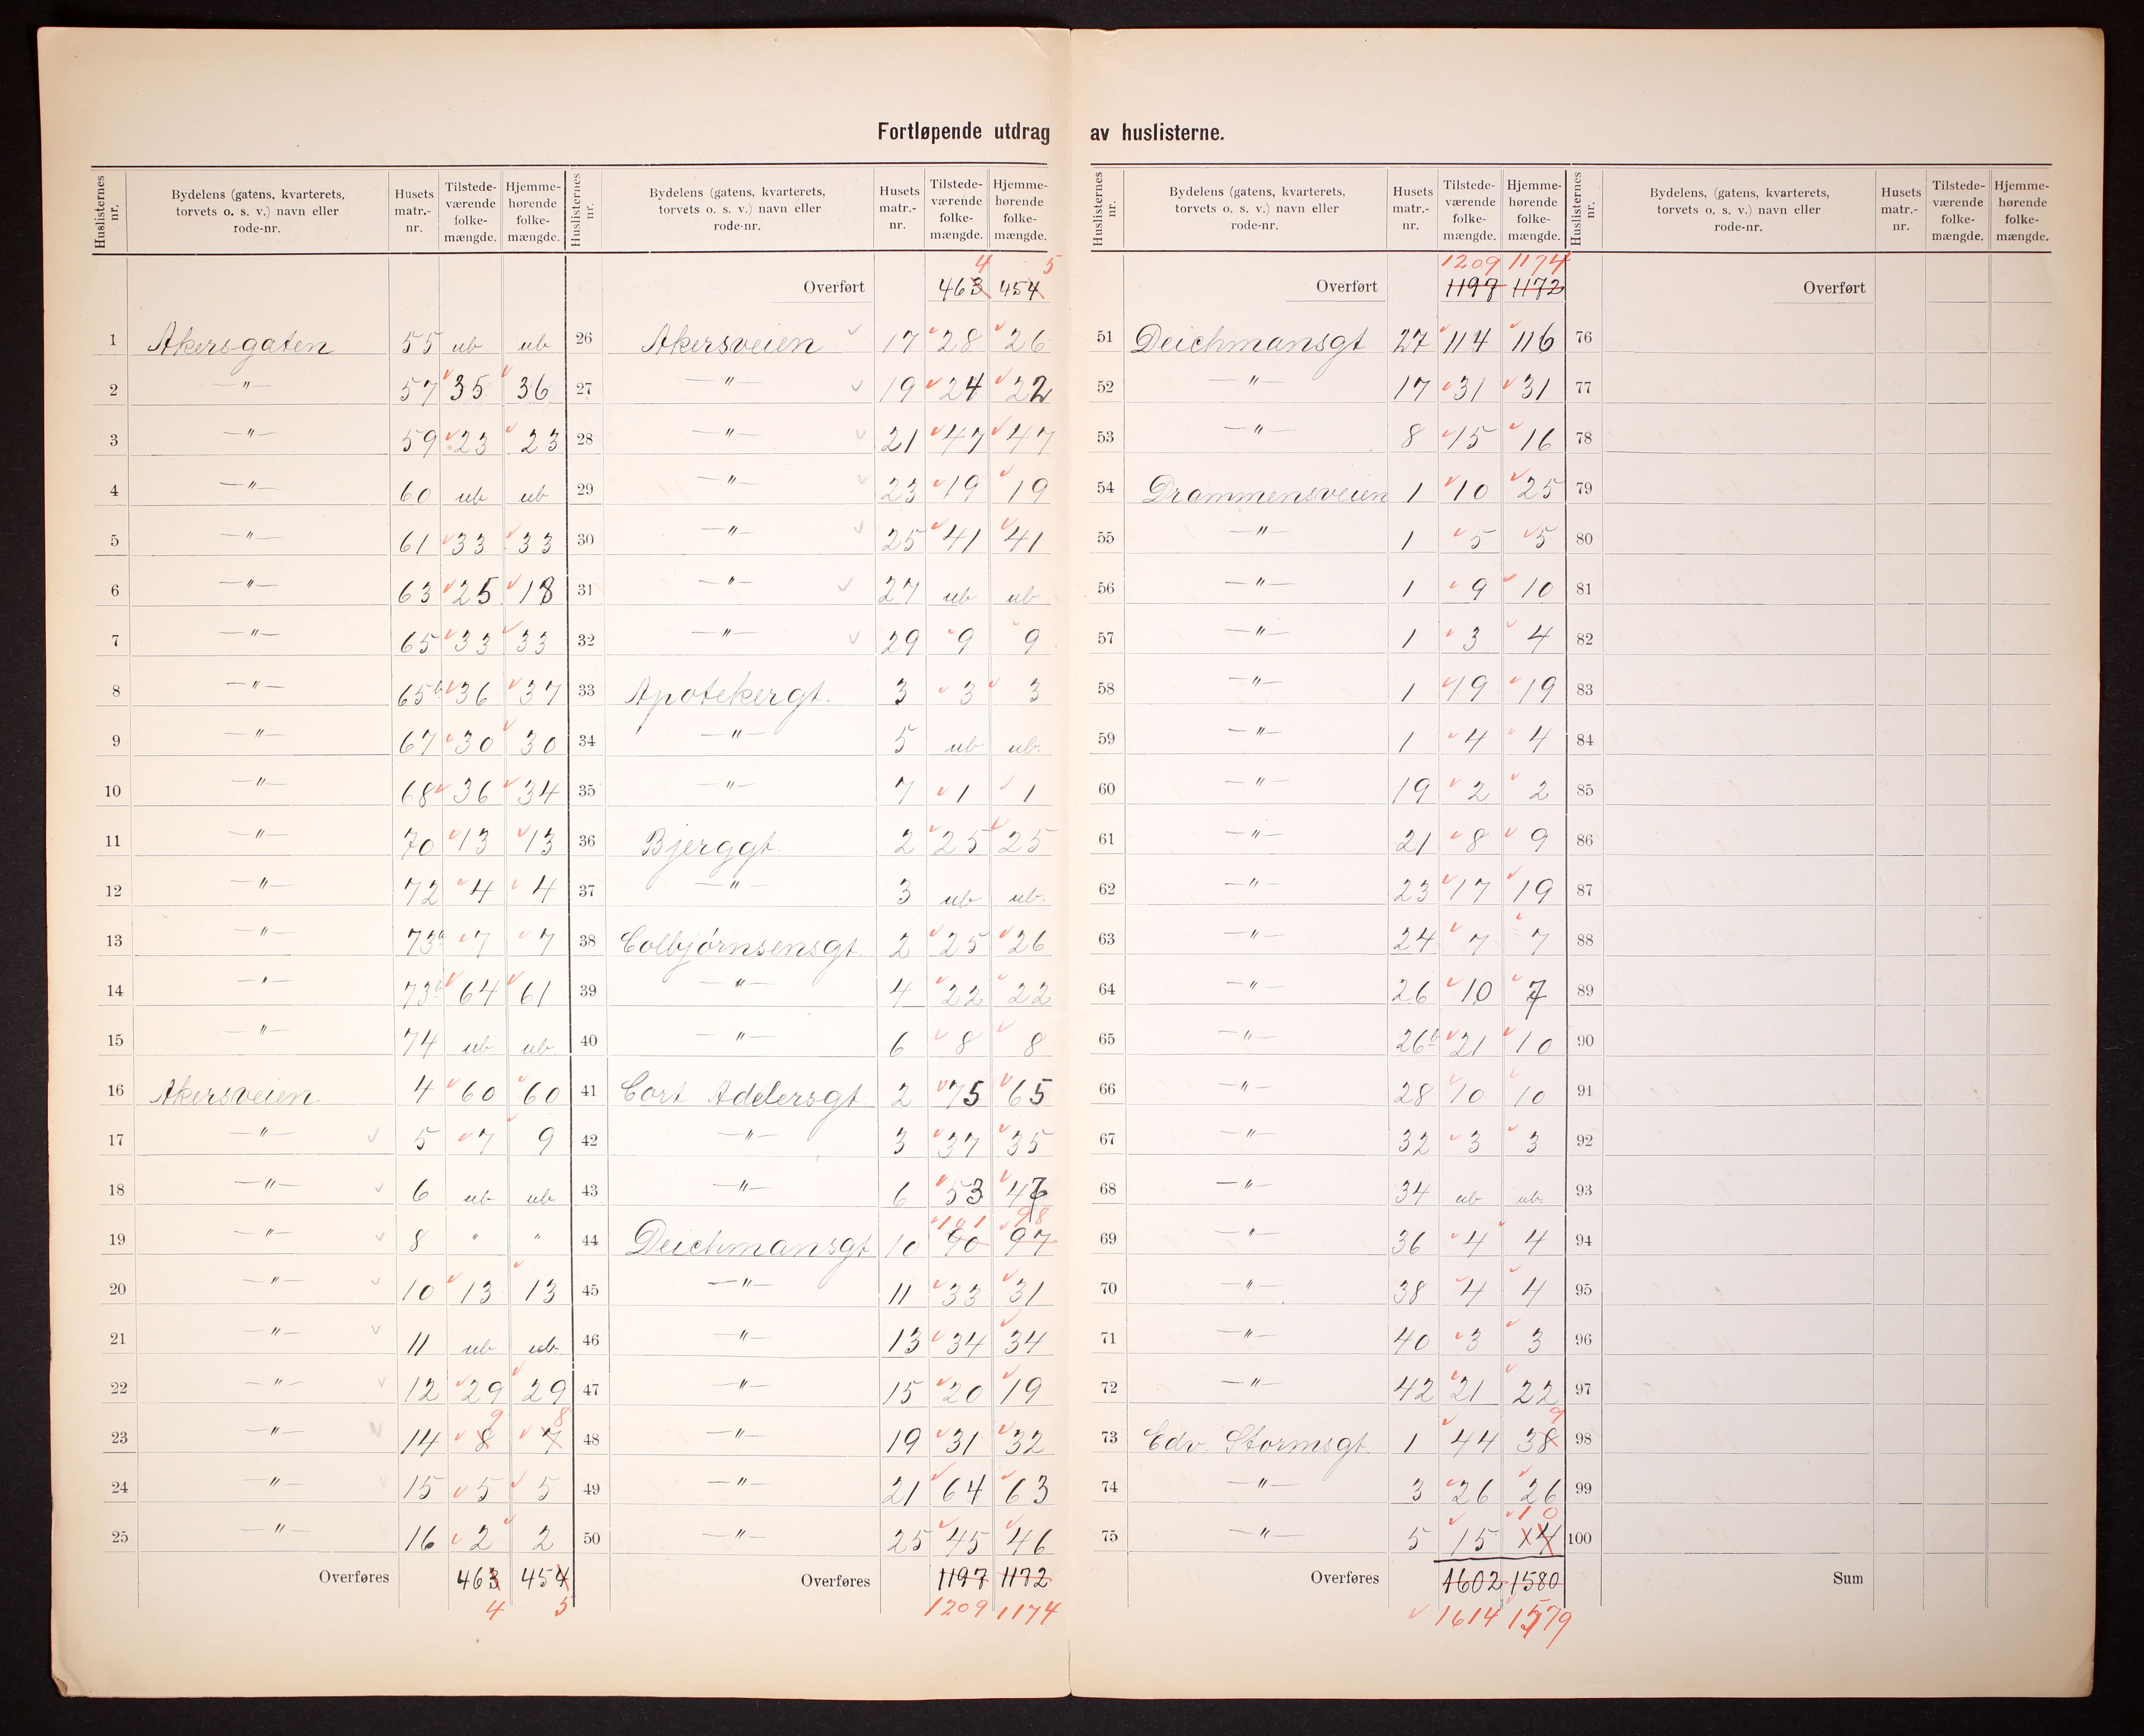 Fortløpende utdrag av huslisterne.
Huslisternes nr. | Bydelens (gatens, kvarterets, torvets o. s. v.) navn eller rode-nr. | Husets matr.-nr. | Tilstede-værende folke-mængde. | Hjemme-hørende folke-mængde.
1 Akersgaten 55 ub ub
2 —"— 57 35 36
3 —"— 59 23 23
4 —"— 60 ub ub
5 —"— 61 33 33
6 —"— 63 25 18
7 —"— 65 33 33
8 —"— 65b 36 37
9 —"— 67 30 30
10 —"— 68 36 34
11 —"— 70 13 13
12 —"— 72 4 4
13 —"— 73a 7 7
14 —"— 73b 64 61
15 —"— 74 ub ub
16 Akersveien 4 60 60
17 —"— 5 7 9
18 —"— 6 ub ub
19 —"— 8 " "
20 —"— 10 13 13
21 —"— 11 ub ub
22 —"— 12 29 29
9 8
23 —"— 14 8 7
24 —"— 15 5 5
25 —"— 16 2 2
Overføres 463 454
4 5
Huslisternes nr. | Bydelens (gatens, kvarterets, torvets o. s. v.) navn eller rode-nr. | Husets matr.-nr. | Tilstede-værende folke-mængde. | Hjemme-hørende folke-mængde.
4 5
Overført 463 454
26 Akersveien 17 28 26
27 —"— 19 24 22
28 —"— 21 47 47
29 —"— 23 19 19
30 —"— 25 41 41
31 —"— 27 ub ub
32 —"— 29 9 9
33 Apotekergt. 3 3 3
34 —"— 5 ub ub.
35 —"— 7 1 1
36 Bjerggt. 2 25 25
37 —"— 3 ub ub.
38 Colbjørnsensgt. 2 25 26
39 —"— 4 22 22
40 —"— 6 8 8
41 Cort Adelersgt. 2 75 65
42 —"— 3 37 35
43 —"— 6 53 47
101 98
44 Deichmansgt 10 90 97
45 —"— 11 33 31
46 —"— 13 34 34
47 —"— 15 20 19
48 —"— 19 31 32
49 —"— 21 64 63
50 —"— 25 45 46
Overføres 1197 1172
1209 1174
Huslisternes nr. | Bydelens (gatens, kvarterets, torvets o. s. v.) navn eller rode-nr. | Husets matr.-nr. | Tilstede-værende folke-mængde. | Hjemme-hørende folke-mængde.
1209 1174
Overført 1197 1172
51 Deichmansgt 27 114 116
52 —"— 17 31 31
53 —"— 8 15 16
54 Drammensveien 1 10 25
55 —"— 1 5 5
56 —"— 1 9 10
57 —"— 1 3 4
58 —"— 1 19 19
59 —"— 1 4 4
60 —"— 19 2 2
61 —"— 21 8 9
62 —"— 23 17 19
63 —"— 24 7 7
64 —"— 26 10 7
65 —"— 26b 21 10
66 —"— 28 10 10
67 —"— 32 3 3
68 —"— 34 ub ub.
69 —"— 36 4 4
70 —"— 38 4 4
71 —"— 40 3 3
72 —"— 42 21 22
9
73 Edv. Stormsgt. 1 44 38
74 —"— 3 26 26
10
75 —"— 5 15
Overføres 1602 1580
1614 1579
Huslisternes nr. | Bydelens, (gatens, kvarterets, torvets o. s. v.) navn eller rode-nr. | Husets matr.-nr. | Tilstede-værende folke-mængde. | Hjemme-hørende folke-mængde.
Overført
76
77
78
79
80
81
82
83
84
85
86
87
88
89
90
91
92
93
94
95
96
97
98
99
100
Sum